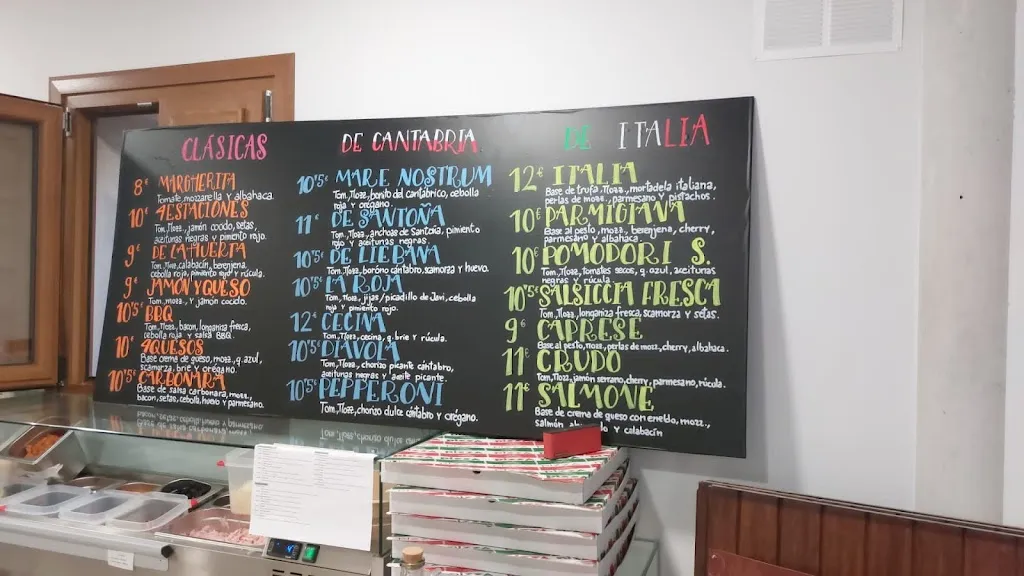 CLÁSICAS
8€ MARGHERITA
Tomate, mozzarella y albahaca.
10€ 4 ESTACIONES
Tom., Mozz., jamón cocido, setas,
aceitunas negras y pimiento rojo.
9€ DE LA HUERTA
Tom., Mozz., calabacín, berenjena,
cebolla roja, pimiento rojo y rúcula.
9€ JAMÓN Y QUESO
Tom., mozz., y jamón cocido.
10'5€ BBQ
Tom., Mozz., bacon, longaniza fresca,
cebolla roja y salsa BBQ.
10€ 4 QUESOS
Base crema de queso, mozz., q. azul,
scamorza, brie y orégano.
10'5€ CARBONARA
Base de salsa carbonara, mozz.,
bacon, setas, cebolla, huevo y parmesano.
DE CANTABRIA
10'5€ MARE NOSTRUM
Tom., Mozz., bonito del cantábrico, cebolla
roja y orégano.
11€ DE SANTOÑA
Tom., Mozz., anchoas de Santoña, pimiento
rojo y aceitunas negras.
10'5€ DE LIÉBANA
Tom., Mozz., boróno cántabro, scamorza y huevo.
10'5€ LA ROJA
Tom., Mozz., jijas/picadillo de Javi, cebolla
roja y pimiento rojo.
12€ CECINA
Tom., Mozz., cecina, q. brie y rúcula.
10'5€ DIAVOLA
Tom., Mozz., chorizo picante cántabro,
aceitunas negras y aceite picante.
10'5€ PEPPERONI
Tom., Mozz., chorizo dulce cántabro y orégano.
DE ITALIA
12€ ITALIA
Base de trufa, Mozz., mortadela italiana,
perlas de mozz., parmesano y pistachos.
10€ PARMIGIANA
Base al pesto, mozz., berenjena, cherry,
parmesano y albahaca.
10€ POMODORI S.
Tom., Mozz., tomates secos, q. azul, aceitunas
negras y rúcula.
10'5€ SALSICCIA FRESCA
Tom., Mozz., longaniza fresca, scamorza y setas.
9€ CAPRESE
Base al pesto, mozz., perlas de mozz., cherry, albahaca.
11€ CRUDO
Tom., Mozz., jamón serrano, cherry, parmesano, rúcula.
11€ SALMONE
Base de crema de queso con eneldo, mozz.,
salmón y calabacín